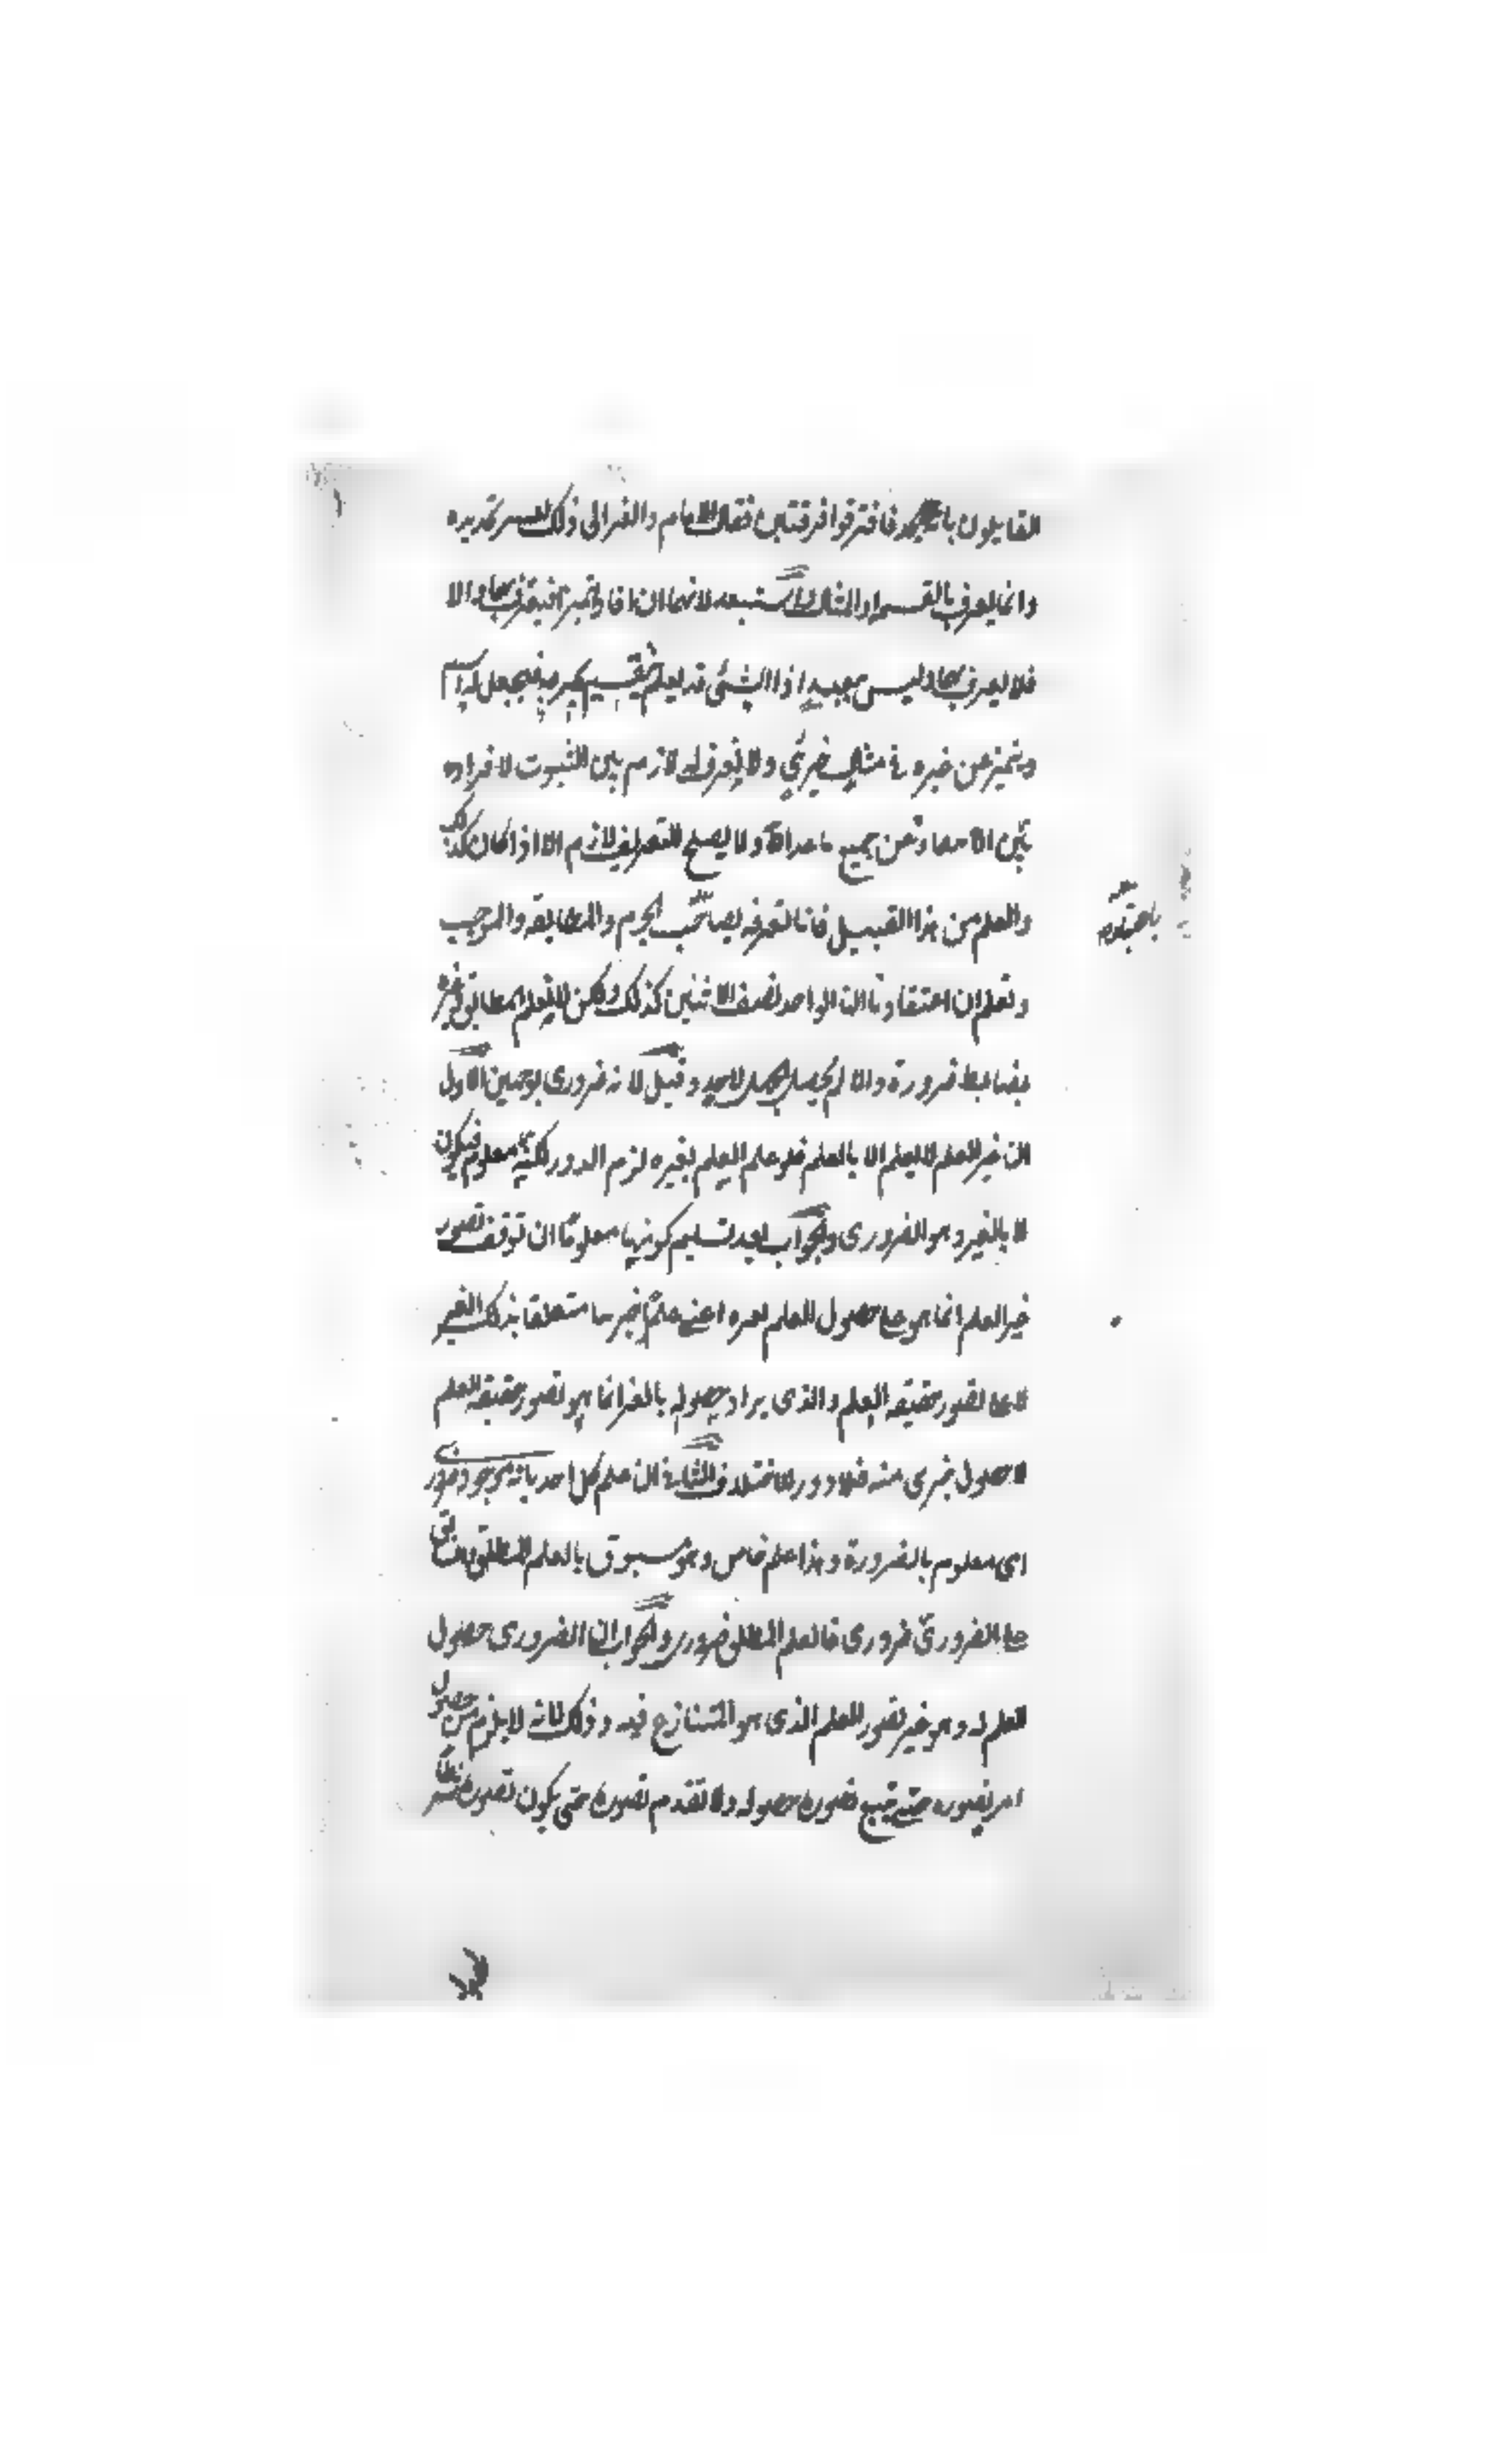 القايلون بانه لا يحد فافترقوا فرقتين فقال الامام والغزالى ذلك لعسر تحديده
وانما يعرف بالقسمة والمثال واستبعد لانهما ان افادا تميزا فيعرف بهما والا
فلا يعرف بهما وليس ببعيد اذ الشئ قد يعلم بتقسيم يخرجه فيجعل له اسم
ويتميز عن غيره فى مثال جزئى ولا يعرف له لازم بين الثبوت لافراده
بين الانتفاء عن جميع ما عداه ولا يصلح للتعريف لازم الا اذا كان كذلك
والعلم من هذا القبيل فانا نعرفه باعتبار الجزم والمطابقة والموجب
ونعلم ان اعتقادنا ان الواحد نصف الاثنين كذلك ولكن لا يعلم المطابق وغيره
بضابط ضرورة والا لم يحصل الجهل لاحد وقيل لانه ضرورى بوجهين الاول
ان غير العلم لا يعلم الا بالعلم فلو علم العلم بغيره لزم الدور لكنه معلوم فيكون
لا بالغير وهو الضرورى والجواب بعد تسليم كونه معلوما ان توقف تصور
غير العلم انما هو على حصول العلم بغيره اعنى علما جزئيا متعلقا بذلك الغير
لا على تصور حقيقة العلم والذى يراد حصوله بالغير انما هو تصور حقيقة العلم
لا حصول جزئى منه فلا دور للاختلاف الثانى ان علم كل احد بانه موجود ضرورى
اى معلوم بالضرورة وهذا علم خاص وهو مسبوق بالعلم المطلق والسابق
على الضرورى ضرورى فالعلم المطلق ضرورى والجواب ان الضرورى حصول
العلم له وهو غير تصور العلم الذى هو المتنازع فيه وذلك لانه لا يلزم من حصول
امر تصوره حتى يتبع تصوره حصوله ولا تقدم تصوره حتى يكون تصوره شرطا